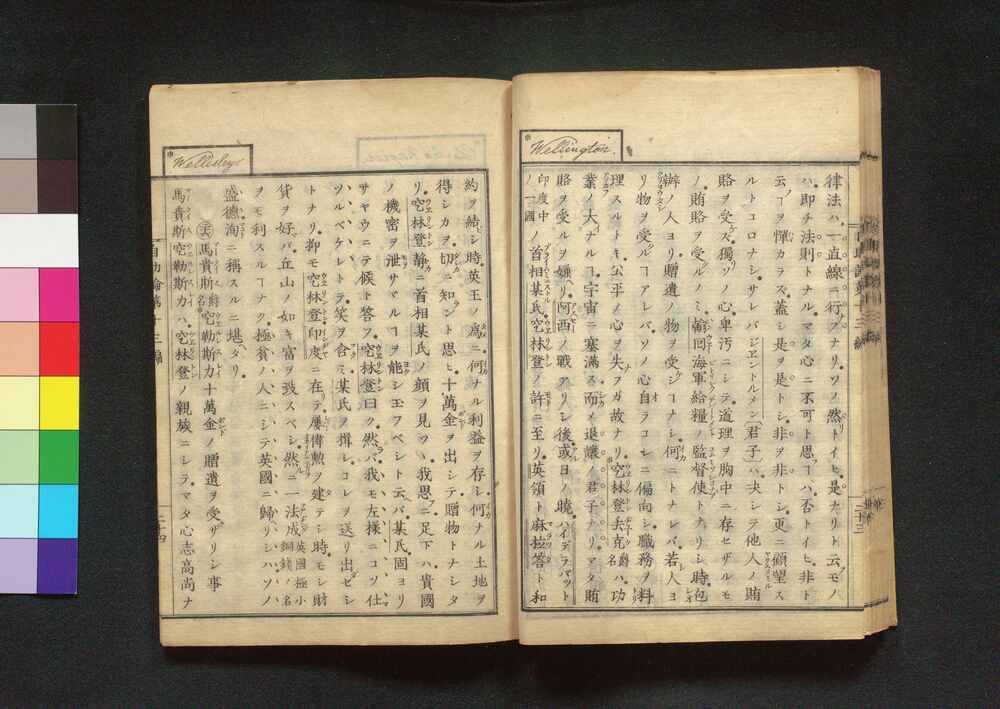 Wellington.
律法ハ一直線ニ行フナリソノ然トイヒ是ナリト云モノ
ハ即チ法則トナルマタ心ニ不可ト思フハ否トイヒ非ト
云フヿヲ憚カラズ蓋シ是ヲ是トシ非ヲ非トシ更ニ顧望ス
ルトコロナシサレバジエントルメン(君子)ハ决シテ他人ノ賄
賂ヲ受ズ獨リソノ心卑汚ニシテ道理ヲ胸中ニ存セザルモ
ノ賄賂ヲ受ルノミ輸回海軍給糧ノ監督使トナリシ時包
辨ノ人ヨリ贈遺ノ物ヲ受シヿナシ何ニトナレバ若人ヨ
リ物ヲ受ルヿアレバソノ心自ラコレニ偏向シ職務ヲ料
理スルトキ公平ノ心ヲ失フガ故ナリ空林登夫克爵名ハ功
業ノ大ナルヿ宇宙ニ塞滿ス而メ退讓ノ君子ナリマタ賄
賂ヲ受ルヲ嫌リ阿西ノ戰アリシ後或日ノ曉ハイデラバット
印度中ノ一國ノ首相某氏空林登ノ許ニ至リ英領ト麻拉答ト和
二十三
Wellesley
約ヲ結シ時英王ノ爲ニ何ナル利益ヲ存シ何ナル土地ヲ
得シカヲ切ニ知ント思ヒ十萬金ヲ出シテ贈物トナシタ
リ空林登靜ニ首相某氏ノ顏ヲ見ツヽ我思ニ足下ハ貴國
ノ機密ヲ泄サマルヿヲ能シ玉フベシト云バ某氏固ヨリ
サヤウニテ候ト答ヲ空林登曰ク然バ我モ左樣ニコソ仕
ツルベケレトテ笑ヲ含ミ某氏ヲ揖レコレヲ送リ出ゼシ
トナリ抑モ空林登印度ニ在リテ屢偉勲ヲ建テシ時モシ財
貨ヲ好バ丘山ノ如キ富ヲ致スベシ然ニ一法成英國極小銅錢ノ名
ヲモ利スルヿナク極貧ノ人ニシテ英國ニ歸リシハソノ
盛德洵ニ稱スルニ堪タリ
馬貴斯空勒斯力十萬金ノ贈遺ヲ受ザリシ事
馬貴斯空勒斯力ハ空林登ノ親族ニシテマタ心志高尚ナ
二十四